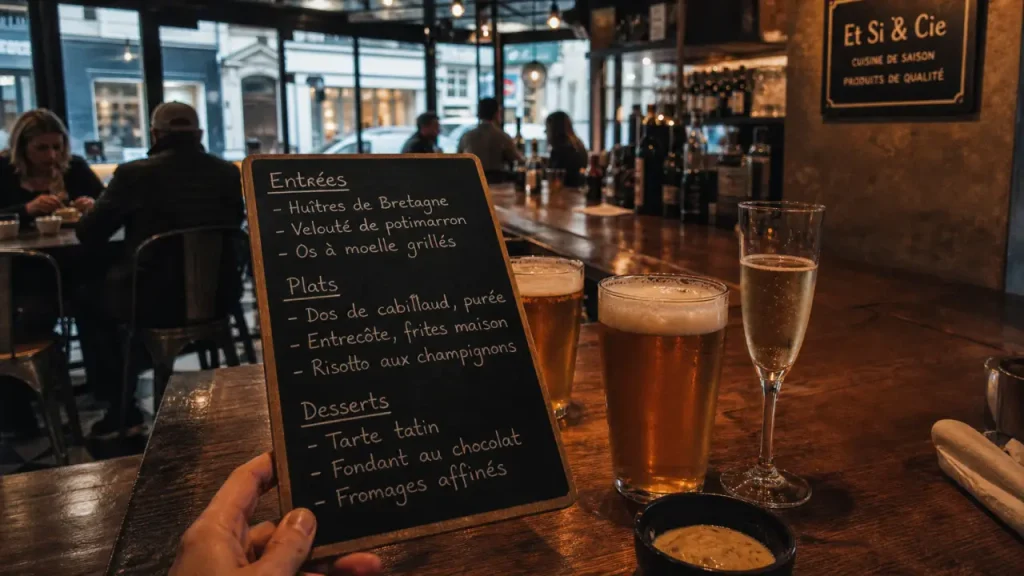 Entrées
- Huîtres de Bretagne
- Velouté de potimarron
- Os à moelle grillés
Plats
- Dos de cabillaud, purée
- Entrecôte, frites maison
- Risotto aux champignons
Desserts
- Tarte tatin
- Fondant au chocolat
- Fromages affinés
Et Si & Cie
CUISINE DE SAISON
PRODUITS DE QUALITÉ